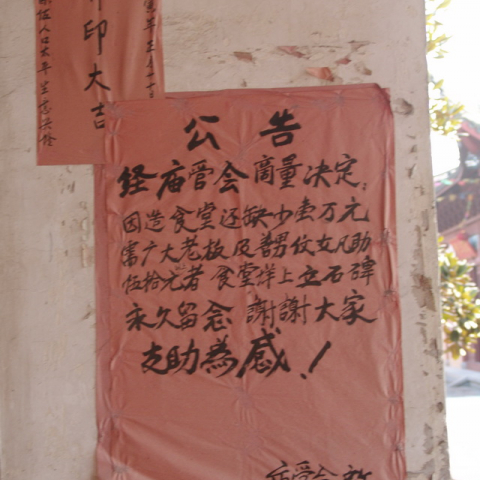 印大吉
人口太平
公告
经庙管会商量决定：
因造食堂还缺少壹万元
需广大老板及善男伩女凡助
伍拾元者 食堂样上立石碑
永久留念 謝謝大家
支助為感！
庙管会